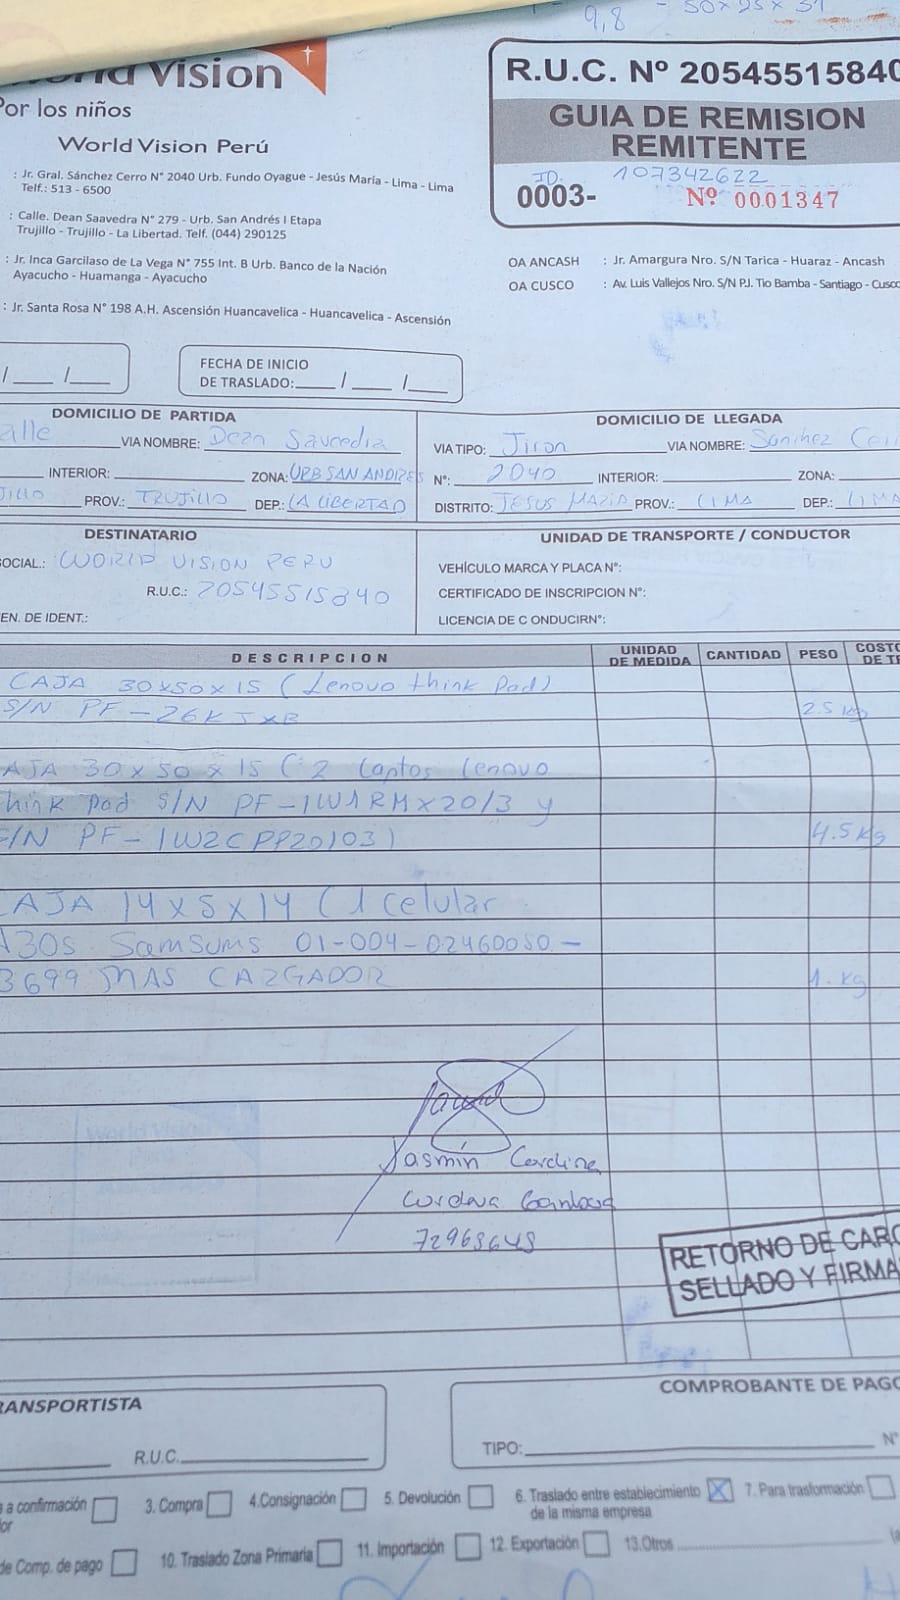 9,8 - 50x25x31
World Vision
Por los niños
World Vision Perú
: Jr. Gral. Sánchez Cerro N° 2040 Urb. Fundo Oyague - Jesús María - Lima - Lima
Telf.: 513 - 6500
: Calle. Dean Saavedra N° 279 - Urb. San Andrés I Etapa
Trujillo - Trujillo - La Libertad. Telf. (044) 290125
: Jr. Inca Garcilaso de La Vega N° 755 Int. B Urb. Banco de la Nación
Ayacucho - Huamanga - Ayacucho
: Jr. Santa Rosa N° 198 A.H. Ascensión Huancavelica - Huancavelica - Ascensión
R.U.C. Nº 20545515840
GUIA DE REMISION
REMITENTE
ID. 107342622
0003- Nº 0001347
OA ANCASH : Jr. Amargura Nro. S/N Tarica - Huaraz - Ancash
OA CUSCO : Av. Luis Vallejos Nro. S/N PJ. Tio Bamba - Santiago - Cusco
/ /
FECHA DE INICIO
DE TRASLADO: / /
DOMICILIO DE PARTIDA
alle VIA NOMBRE: Dean Saavedra
INTERIOR: ZONA: URB SAN ANDRES
JILLO PROV.: TRUJILLO DEP.: LA LIBERTAD
DOMICILIO DE LLEGADA
VIA TIPO: Jiron VIA NOMBRE: Sanchez Cerr
N°: 2040 INTERIOR: ZONA:
DISTRITO: JESUS MARIA PROV.: LIMA DEP.: LIMA
DESTINATARIO
SOCIAL.: WORLD VISION PERU
R.U.C.: 20545515840
EN. DE IDENT.:
UNIDAD DE TRANSPORTE / CONDUCTOR
VEHÍCULO MARCA Y PLACA N°:
CERTIFICADO DE INSCRIPCION N°:
LICENCIA DE C ONDUCIRN°:
DESCRIPCION UNIDAD DE MEDIDA CANTIDAD PESO COSTO DE TR
CAJA 30x50x15 (Lenovo think Pad)
S/N PF-26KTXB 2.5 kg
AJA 30x50x15 (2 laptos lenovo
hink Pad S/N PF-1W1RMX20/3 y
S/N PF-1W2CPP20/03) 4.5 Kg
CAJA 14x5x14 (1 celular
A30s Samsums 01-004-02460050-
3699 MAS CARGADOR 1. Kg
Jasmín
72969649
RETORNO DE CARG
SELLADO Y FIRMA
RANSPORTISTA
R.U.C.
COMPROBANTE DE PAGO
TIPO: N°
a confirmación 3. Compra 4.Consignación 5. Devolución 6. Traslado entre establecimiento de la misma empresa 7. Para trasformación
or
de Comp. de pago 10. Traslado Zona Primaria 11. Importación 12. Exportación 13.Otros